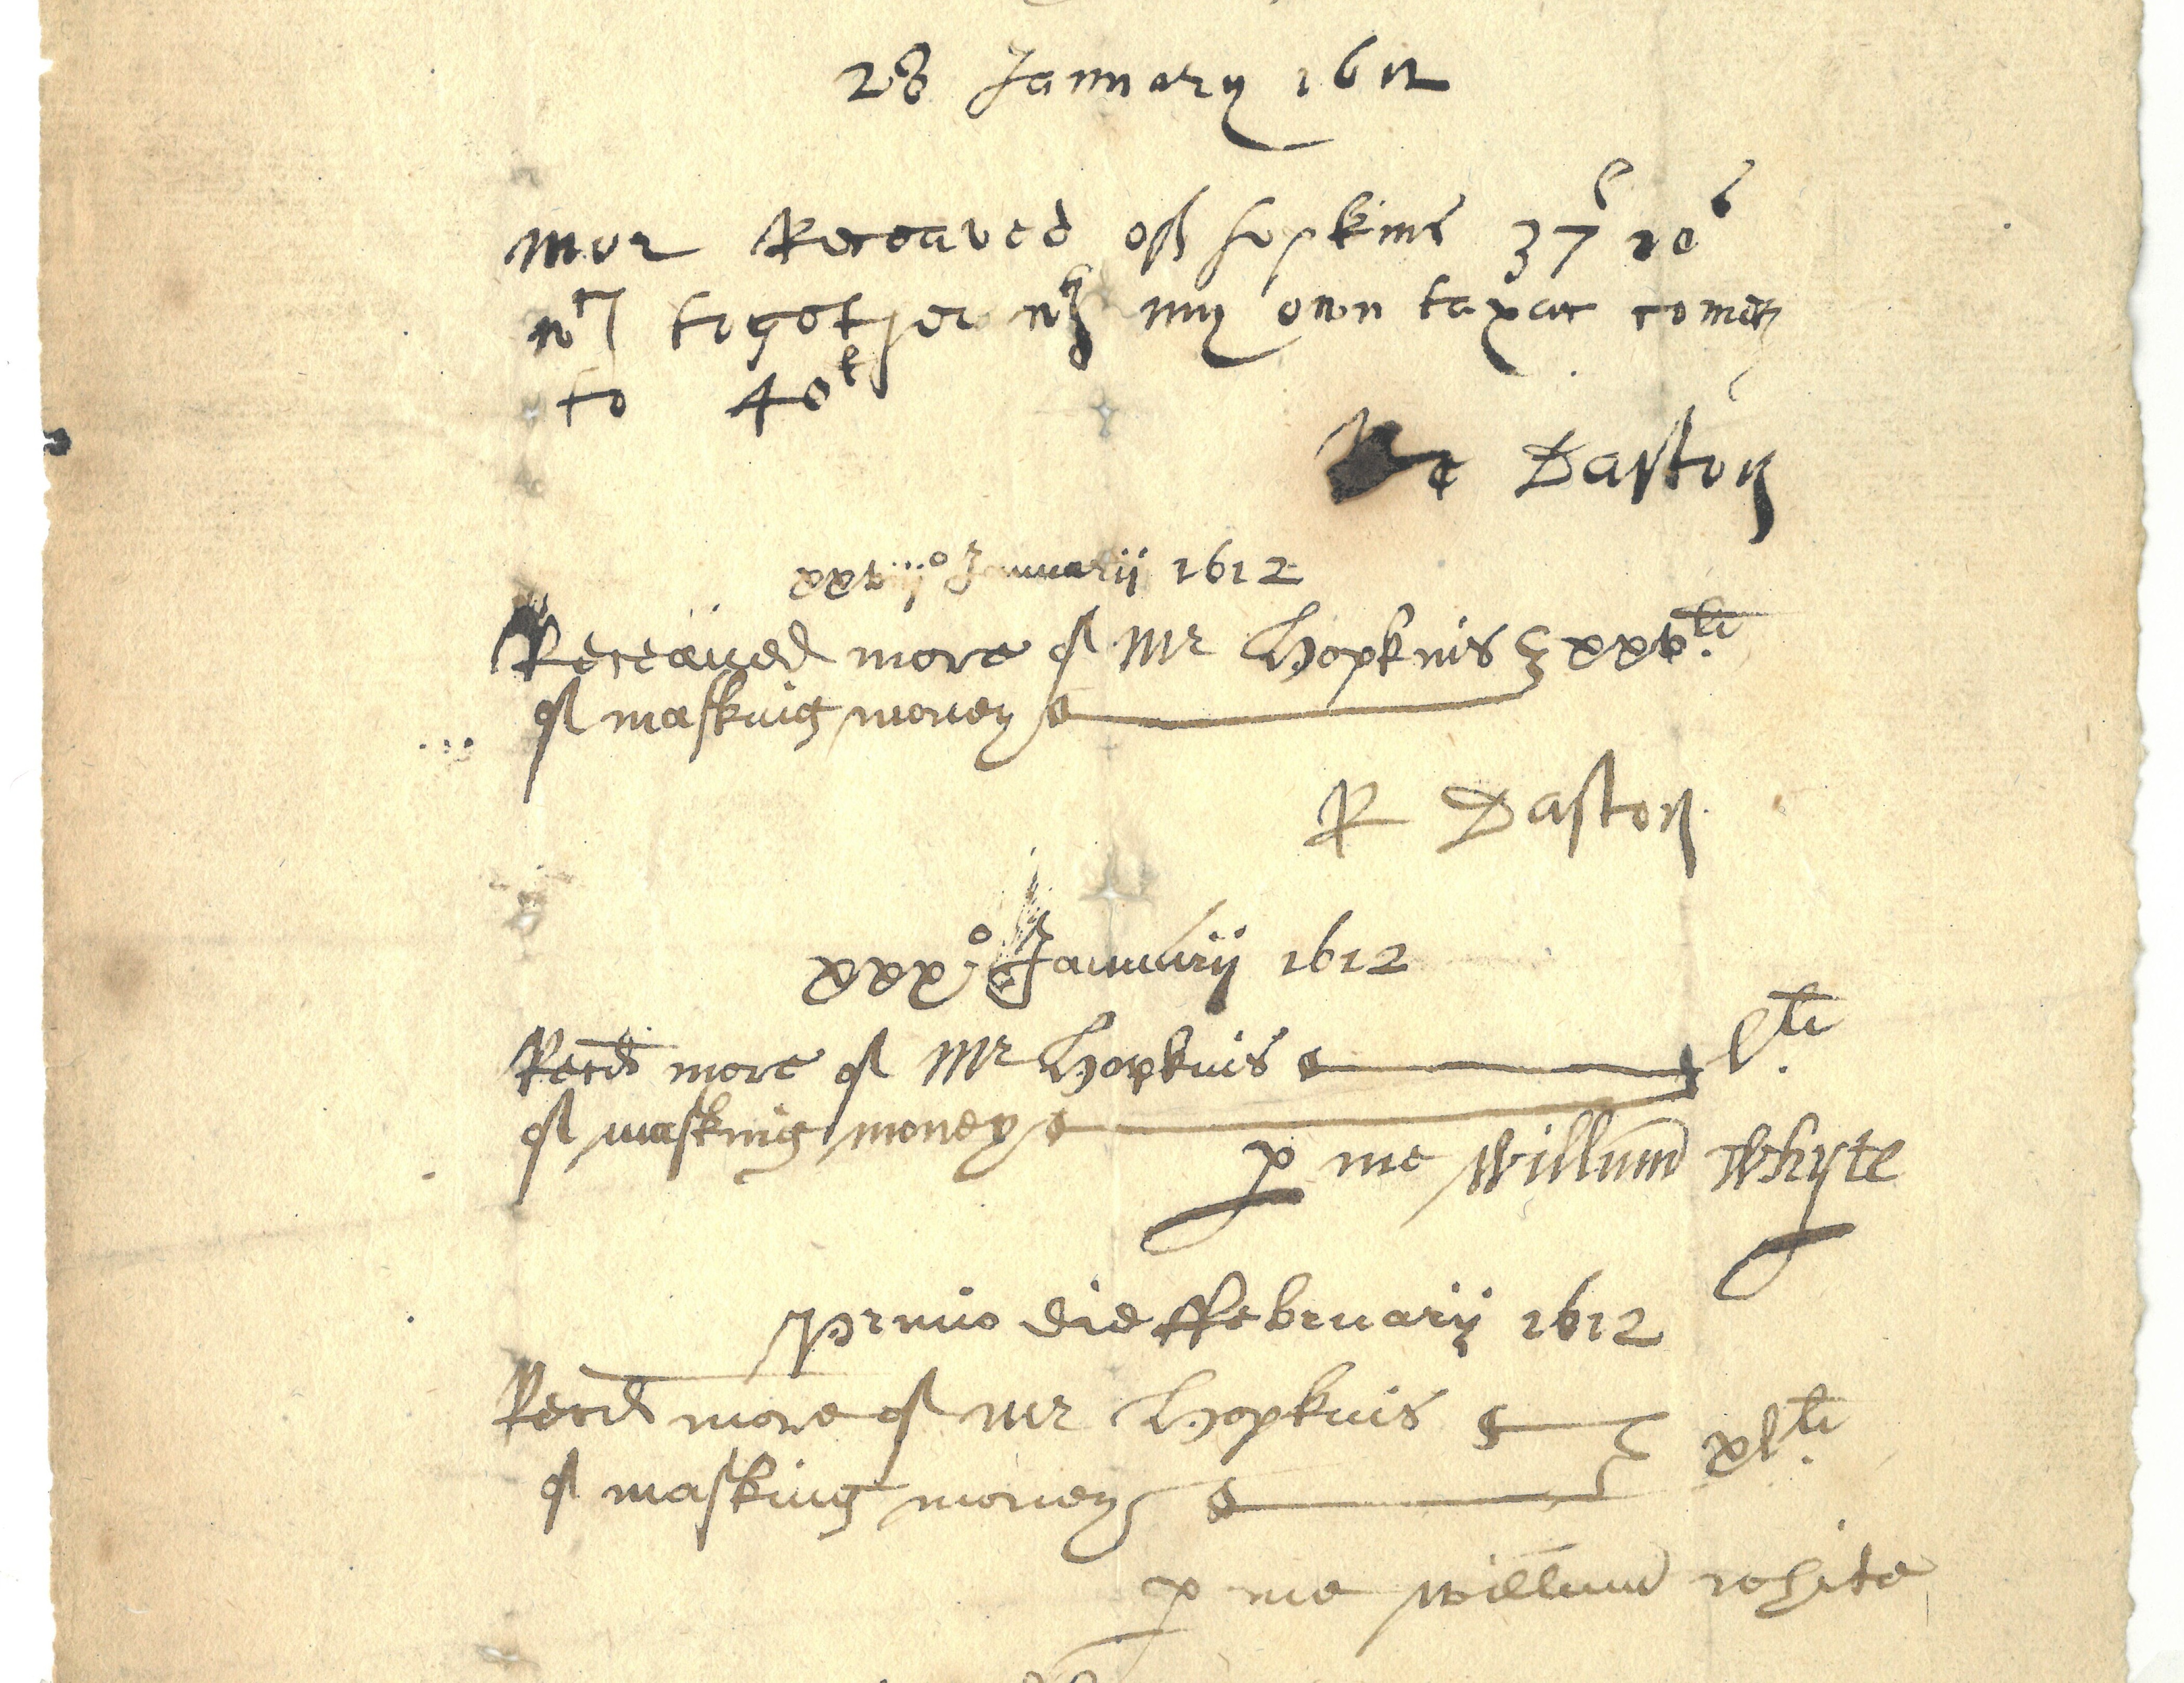 28 January 1612
mor Receaved off hopkins 37l 10s
wch together wth my own taxac cometh
to 40l
Re Daston
xxviijo Januarii 1612
Receaued more of Mr Hopkins xxvli
of masking money
R Daston
xxxo Januarij 1612
Recd more of Mr Hopkins lli
of masking money
p me Willum Whyte
Primo die ffebruarij 1612
Recd more of Mr Hopkins xlli
of masking money
p me willum white